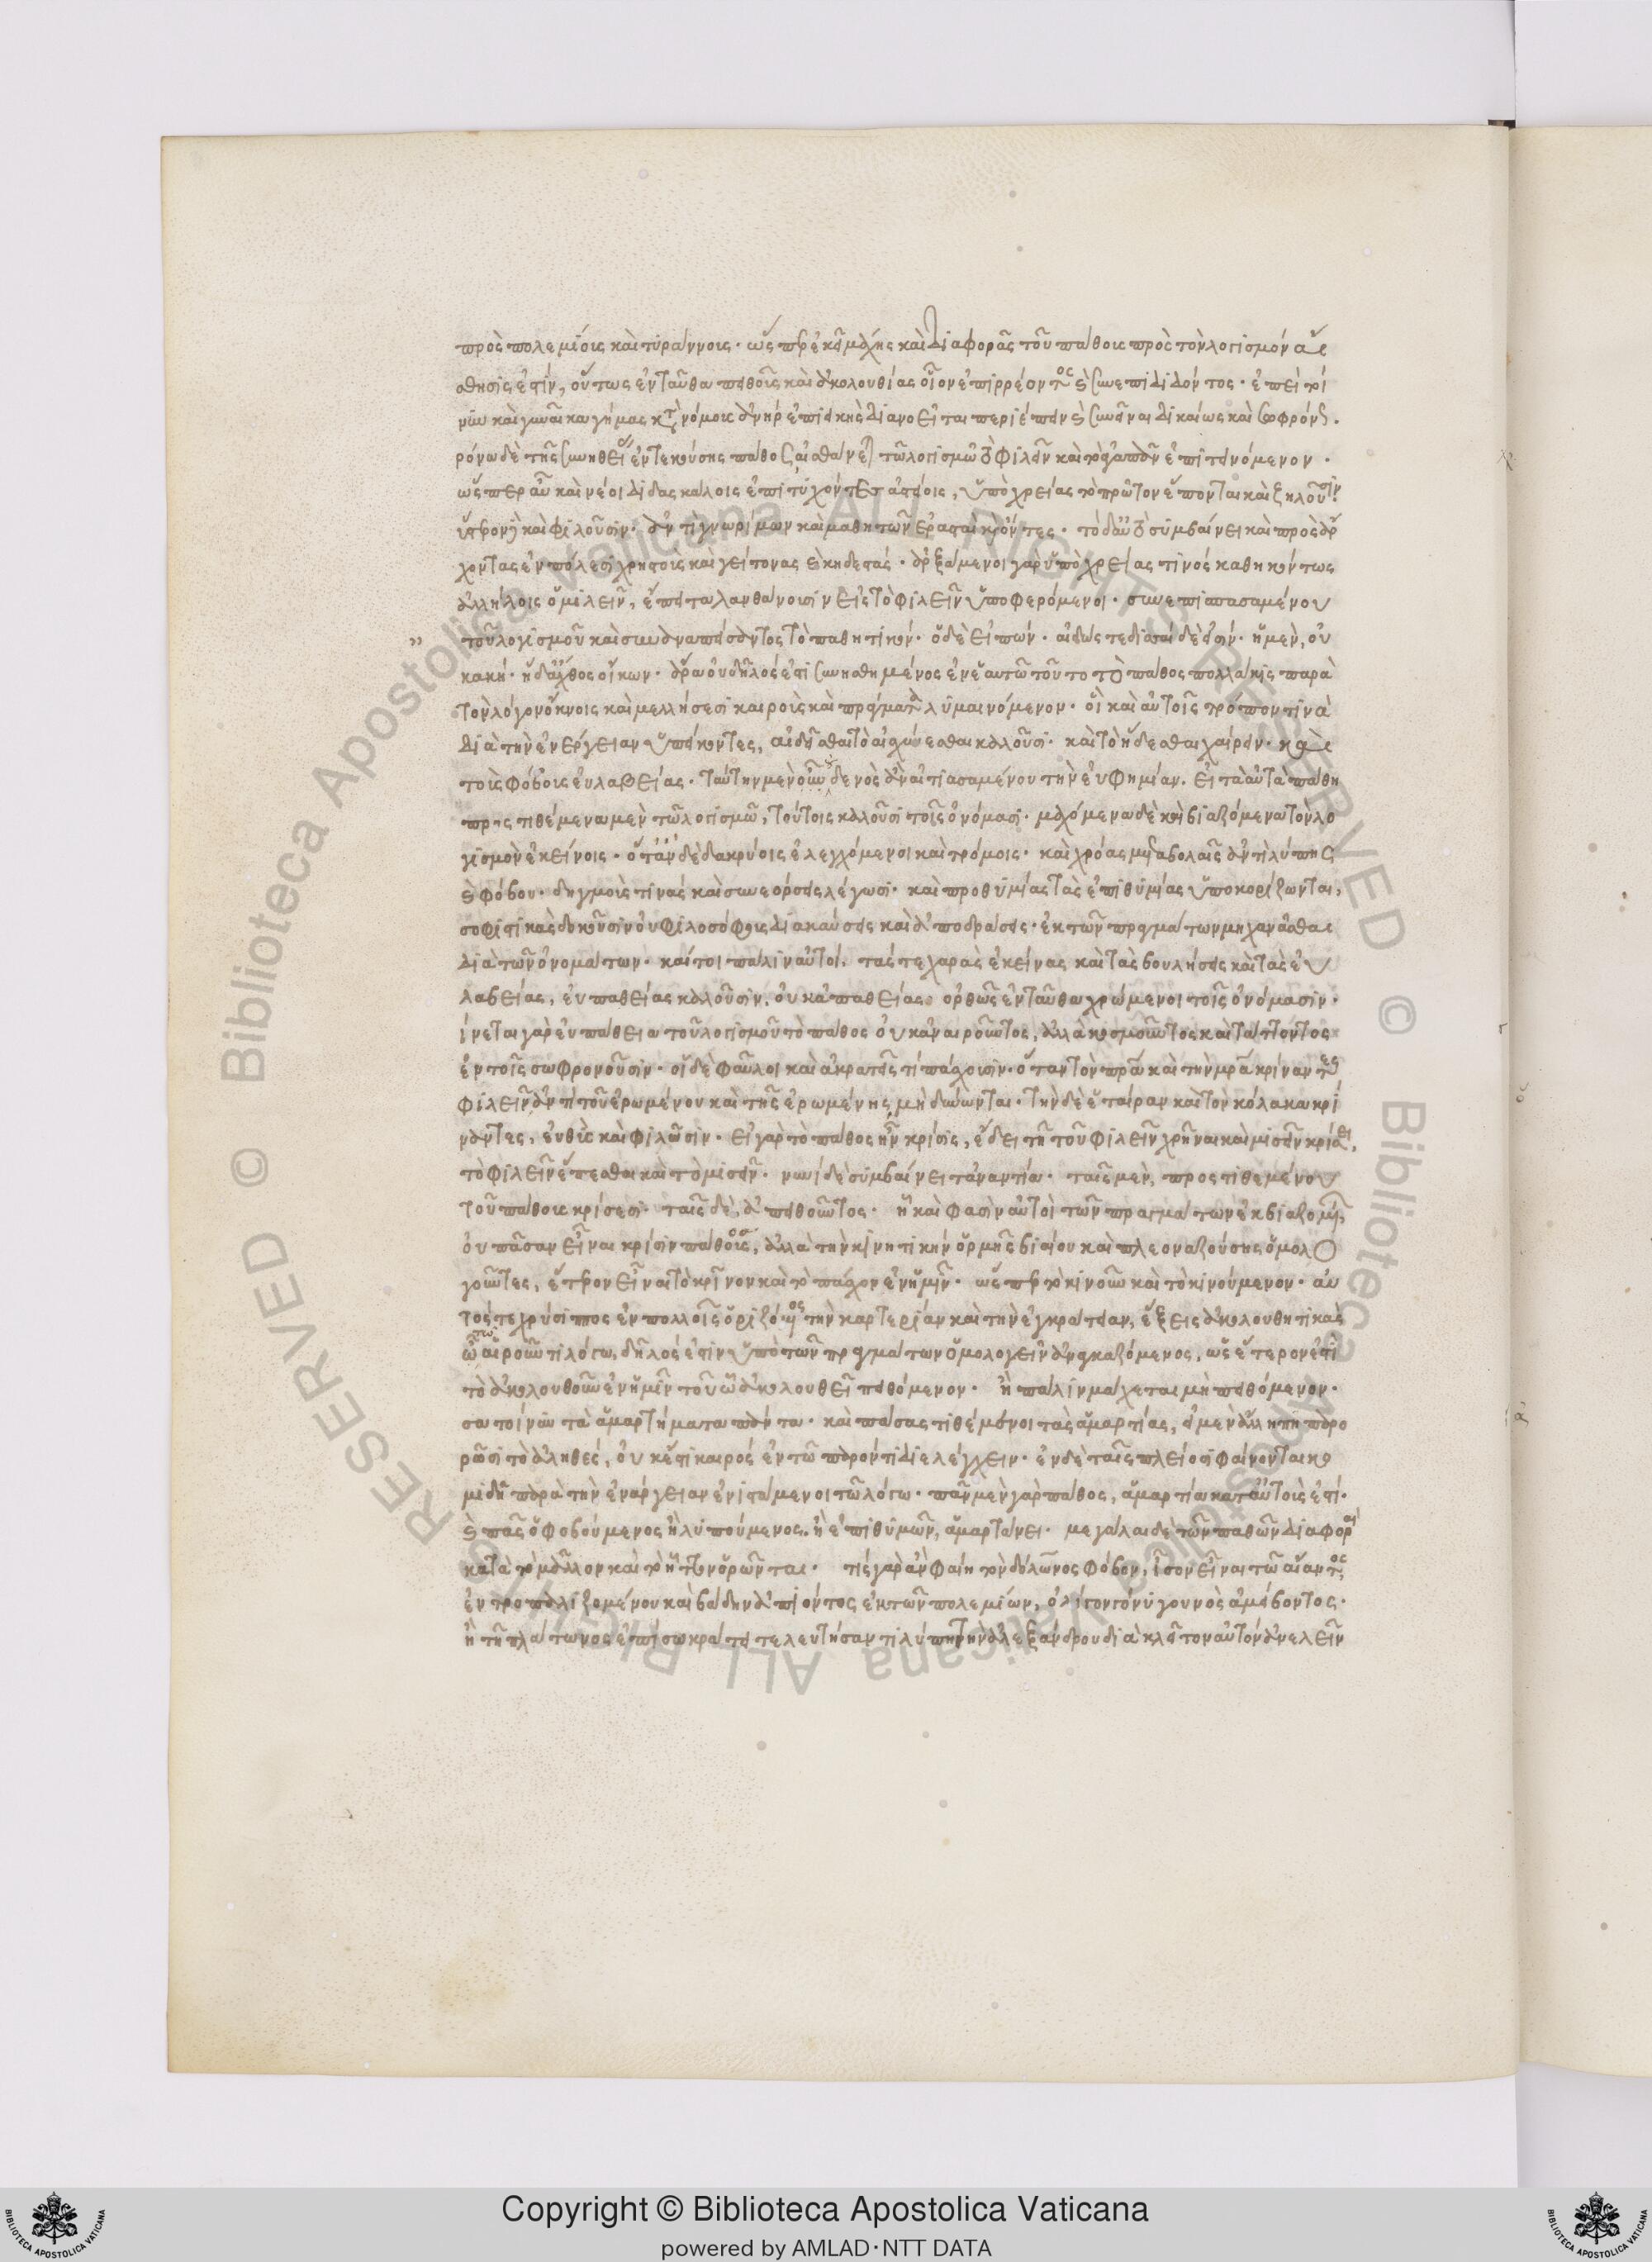 πρὸς πολεμίοις καὶ τυράννοις· ὥσπερ ἐκεῖ μάχης καὶ διαφορᾶς τοῦ πάθους πρὸς τὸν λογισμὸν αἴ
σθησίς ἐστιν, οὕτως ἐνταῦθα πειθοῦς καὶ ἀκολουθίας οἷον ἐπιρρέοντος καὶ συνεπιδιδόντος· ἐπεὶ τοί
νυν καὶ γυναῖκα γήμας κατὰ νόμους ἀνὴρ ἐπιεικὴς διανοεῖται περιέπειν καὶ συνεῖναι δικαίως καὶ σωφρόνως.
ρόνω δὲ τῆς συνηθείας ἐντεκούσης πάθος αἰσθάνεται τῷ λογισμῷ τὸ φιλεῖν καὶ τὸ ἀγαπᾶν ἐπιτεινόμενον·
ὥσπερ αὖ καὶ νέοι διδασκάλοις ἐπιτυχόντες ἀστείοις, ὑπὸ χρείας τὸ πρῶτον ἕπονται καὶ ζηλοῦσιν
ὕστερον δὲ καὶ φιλοῦσιν· ἀντὶ γνωρίμων καὶ μαθητῶν ἐρασταὶ καλούντες· τὸ δ' αὐτὸ συμβαίνει καὶ πρὸς ἄρ
χοντας ἐν πόλεσι χρηστοὺς καὶ γείτονας καὶ κηδεστάς· ἀρξάμενοι γὰρ ὑπὸ χρείας τινὸς καθηκόντως
ἀλλήλοις ὁμιλεῖν, εἶτα λανθάνουσιν εἰς τὸ φιλεῖν ὑποφερόμενοι· συνεπισπασαμένου
τοῦ λογισμοῦ καὶ συναναπείσαντος τὸ παθητικόν· ὁ δὲ εἰπών· αἰδώς τε δισσαὶ δὲ εἰσίν· ἡ μὲν, οὐ
κακή· ἡ δ' ἄχθος οἴκων· ἆρ' οὐ δῆλός ἐστι συνησθημένος ἐν ἑαυτῷ τοῦτο τὸ πάθος πολλάκις παρὰ
τὸν λόγον ὄκνοις καὶ μελλήσεσι καιροὺς καὶ πράγματα λυμαινόμενον· οἷς καὶ αὐτοῖς τρόπον τινὰ
διὰ τὴν ἐνέργειαν ὑπείκοντες, αἰδεῖσθαι τὸ αἰσχύνεσθαι καλοῦσι· καὶ τὸ ἥδεσθαι χαίρειν· καὶ
τοὺς φόβους εὐλαβείας· ταύτην μὲν οὖν οὐδενὸς ἂν αἰτιασαμένου τὴν εὐφημίαν. εἰ τὰ αὐτὰ πάθη
προστιθέμενα μὲν τῷ λογισμῷ, τούτοις καλοῦσι τοῖς ὀνόμασι· μαχόμενα δὲ καὶ βιαζόμενα τὸν λο
γισμὸν ἐκείνοις· ὅταν δὲ δακρύοις ἐλεγχόμενοι καὶ τρόμοις· καὶ χρόας μεταβολαῖς ἀντὶ λύπης
καὶ φόβου· δηγμούς τινας καὶ συνεόρσεις λέγωσι· καὶ προθυμίας τὰς ἐπιθυμίας ὑποκορίζωνται,
σοφιστικὰς δοκοῦσιν οὐ φιλοσόφους διακαύσεις καὶ ἀποδράσεις· ἐκ τῶν πραγμάτων μηχανᾶσθαι
διὰ τῶν ὀνομάτων· καίτοι πάλιν αὐτοί. τάς τε χαρὰς ἐκείνας καὶ τὰς βουλήσεις καὶ τὰς εὐ
λαβείας, εὐπαθείας καλοῦσιν, οὐκ ἀπαθείας· ὀρθῶς ἐνταῦθα χρώμενοι τοῖς ὀνόμασιν·
ίνεται γὰρ εὐπάθεια τοῦ λογισμοῦ τὸ πάθος οὐκ ἀναιροῦντος, ἀλλὰ κοσμοῦντος καὶ τάττοντος
ἐν τοῖς σωφρονοῦσιν· οἱ δὲ φαῦλοι καὶ ἀκρατεῖς τί πάσχουσιν· ὅταν τὸν πατέρα καὶ τὴν μητέρα κρίναντες
φιλεῖν ἀντὶ τοῦ ἐρωμένου καὶ τῆς ἐρωμένης, μὴ δύνωνται· τὴν δὲ ἑταίραν καὶ τὸν κόλακα κρί
ναντες, εὐθὺς καὶ φιλῶσιν· εἰ γὰρ τὸ πάθος ἦν κρίσις, ἔδει τῇ τοῦ φιλεῖν χρῆναι καὶ μισεῖν κρίσει,
τὸ φιλεῖν ἕπεσθαι καὶ τὸ μισεῖν· νυνὶ δὲ συμβαίνει τἀναντία· ταῖς μὲν, προστιθεμένου
τοῦ πάθους κρίσεσι· ταῖς δὲ, ἀπειθοῦντος· ᾗ καὶ φασὶν αὐτοὶ τῶν πραγμάτων ἐκβιαζομένων,
οὐ πᾶσαν εἶναι κρίσιν πάθους, ἀλλὰ τὴν κινητικὴν ὁρμῆς βιαίου καὶ πλεοναζούσης ὁμολο
γοῦντες, ἕτερον εἶναι τὸ κρῖνον καὶ τὸ πάσχον ἐν ἡμῖν· ὥσπερ τὸ κινοῦν καὶ τὸ κινούμενον· αὐ
τός τε χρύσιππος ἐν πολλοῖς ὁριζόμενος τὴν καρτερίαν καὶ τὴν ἐγκράτειαν, ἕξεις ἀκολουθητικὰς
τῷ αἱροῦντι λόγῳ, δῆλός ἐστιν ὑπὸ τῶν πραγμάτων ὁμολογεῖν ἀναγκαζόμενος, ὡς ἕτερόν ἐστι
τὸ ἀκολουθοῦν ἐν ἡμῖν τοῦ ᾧ ἀκολουθεῖ πειθόμενον· ἢ πάλιν μάχεται μὴ πειθόμενον·
σα τοίνυν τὰ ἁμαρτήματα πάντα· καὶ πάσας τιθέμενοι τὰς ἁμαρτίας, εἰ μὲν ἄλλῃ πῃ παρο
ρῶσι τὸ ἀληθές, οὐκ ἔστι καιρὸς ἐν τῷ παρόντι διελέγχειν· ἐν δὲ ταῖς πλείοσι φαίνονται κο
μιδῇ παρὰ τὴν ἐνάργειαν ἐνιστάμενοι τῷ λόγῳ· πᾶν μὲν γὰρ πάθος, ἁμαρτία κατ' αὐτούς ἐστι·
καὶ πᾶς ὁ φοβούμενος ἢ λυπούμενος· ἢ ἐπιθυμῶν, ἁμαρτάνει· μεγάλαι δὲ τῶν παθῶν διαφοραὶ
κατὰ τὸ μᾶλλον καὶ τὸ ἧττον ὁρῶνται· τίς γὰρ ἂν φαίη τὸν δόλωνος φόβον, ἴσον εἶναι τῷ αἴαντος,
ἐντροπαλιζομένου καὶ βάδην ἀπιόντος ἐκ τῶν πολεμίων, ὀλίγον γόνυ γουνὸς ἀμείβοντος·
ἢ τῇ πλάτωνος ἐπὶ σωκράτει τελευτήσαντι λύπῃ τὴν ἀλεξάνδρου διὰ κλεῖτον αὐτὸν ἀνελεῖν
Copyright © Biblioteca Apostolica Vaticana
powered by AMLAD·NTT DATA